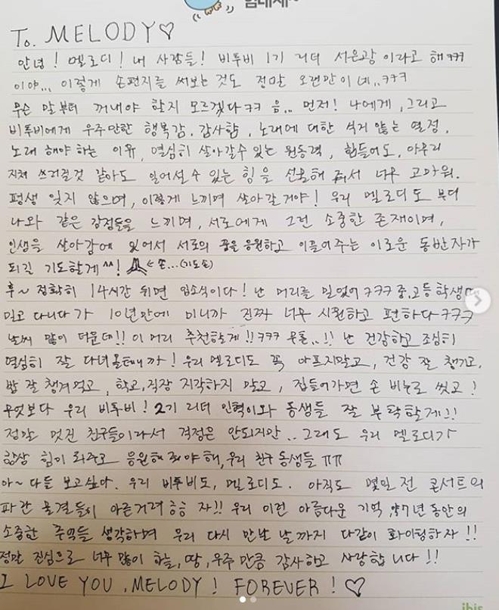 To. MELODY♡
안녕! 멜로디! 내 사람들! 비투비 1기 리더 서은광 이라고 해 ㅋㅋㅋ
이야... 이렇게 손편지를 써보는 것도 정말 오랜만이네..ㅋㅋㅋ
무슨 말부터 꺼내야 할지 모르겠다 ㅋㅋ 음.. 먼저! 나에게, 그리고
비투비에게 우주만한 행복감, 감사함, 노래에 대한 식지 않는 열정,
노래 해야 하는 이유, 열심히 살아갈 수 있는 원동력, 힘들어도, 아무리
지쳐 쓰러질것 같아도 일어설 수 있는 힘을 선물해 줘서 너무 고마워.
평생 잊지 않으며, 이렇게 느끼며 살아 갈거야! 우리 멜로디도 부디
나와 같은 감정들을 느끼며, 서로에게 그런 소중한 존재이며,
인생을 살아감에 있어서 서로의 꿈을 응원하고 이끌어주는 이로운 동반자가
되길 기도할게^^! 🙏←손...(기도손)
후~ 정확히 14시간 뒤면 입소식이다! 난 머리를 밀었어 ㅋㅋㅋ 중,고등학생때
밀고 다니다가 10년만에 미니까 진짜 너무 시원하고 편하다 ㅋㅋㅋ
날씨 많이 더운데!! 이 머리 추천할게!! ㅋㅋㅋ 우툰..!! 난 건강하고 조심히
열심히 잘 다녀올테니까! 우리 멜로디도 꼭 아프지말고, 건강 잘 챙기고,
밥 잘 챙겨먹고, 학교, 직장 지각하지 말고, 집들어가면 손 비누로 씻고!
무엇보다 우리 비투비! 2기 리더 민혁이와 동생들 잘 부탁할게!!
정말 멋진 친구들이라서 걱정은 안되지만.. 그래도 우리 멜로디가
항상 힘이 되주고 응원해 줘야해, 우리 친구 동생들 ㅠㅠ
아~ 다들 보고싶다. 우리 비투비도, 멜로디도. 아직도 몇일 전 콘서트의
파란 물결들이 아른거려 흐흐 자!! 우리 이런 아름다운 기억, 약 7년 동안의
소중한 추억들 생각하며 우리 다시 만날 날 까지 다같이 화이팅하자!!
정말 진심으로 너무 많이 하늘, 땅, 우주만큼 감사하고 사랑합니다!!
I LOVE YOU. MELODY! FOREVER! ♡
ibis